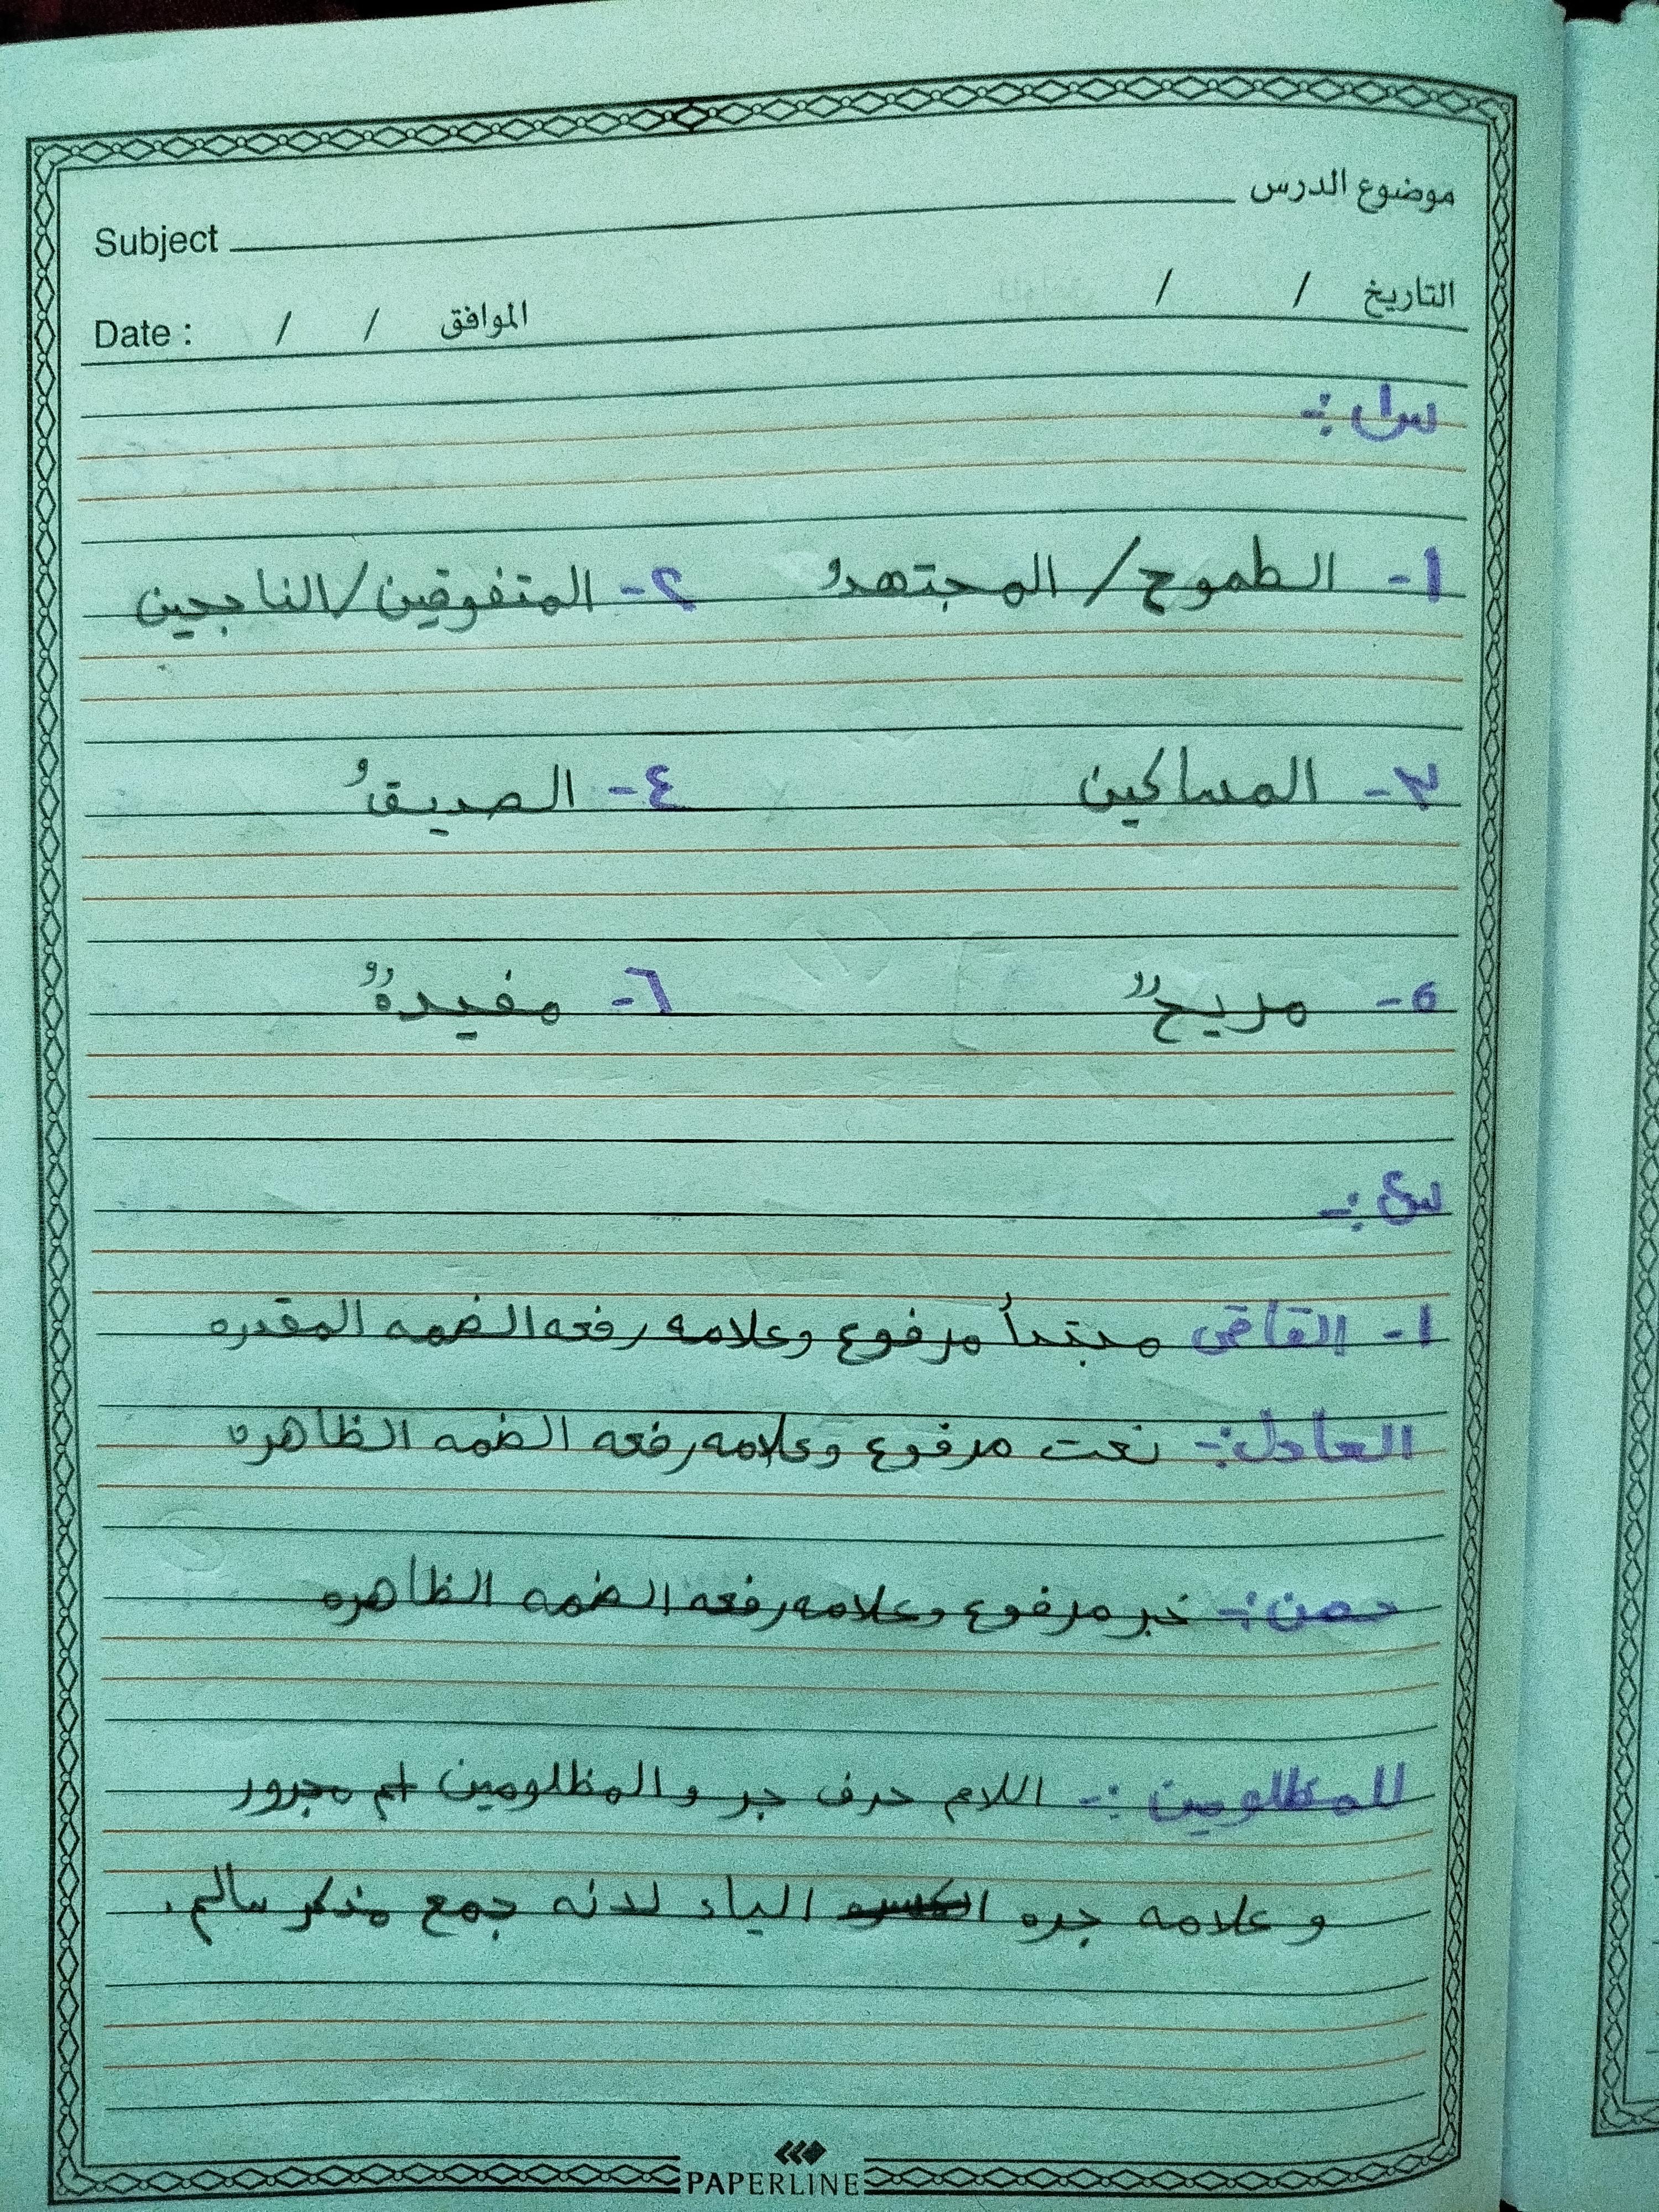 موضوع الدرس
Subject
التاريخ / / الموافق / / Date :
س١ :-
١- الطموح / المجتهدُ ٢- المتفوقين / الناجحين
٣- المساكين ٤- الصديقُ
٥- مريحٌ ٦- مفيدهٌ
س٢ :-
١- القاضى مبتدأ مرفوع وعلامه رفعه الضمه المقدره
العادل :- نعت مرفوع وعلامه رفعه الضمه الظاهره
حصن :- خبر مرفوع وعلامه رفعه الضمه الظاهره
للمظلومين :- اللام حرف جر و المظلومين اسم مجرور
و علامه جره الكسره الياء لانه جمع مذكر سالم .
PAPERLINE